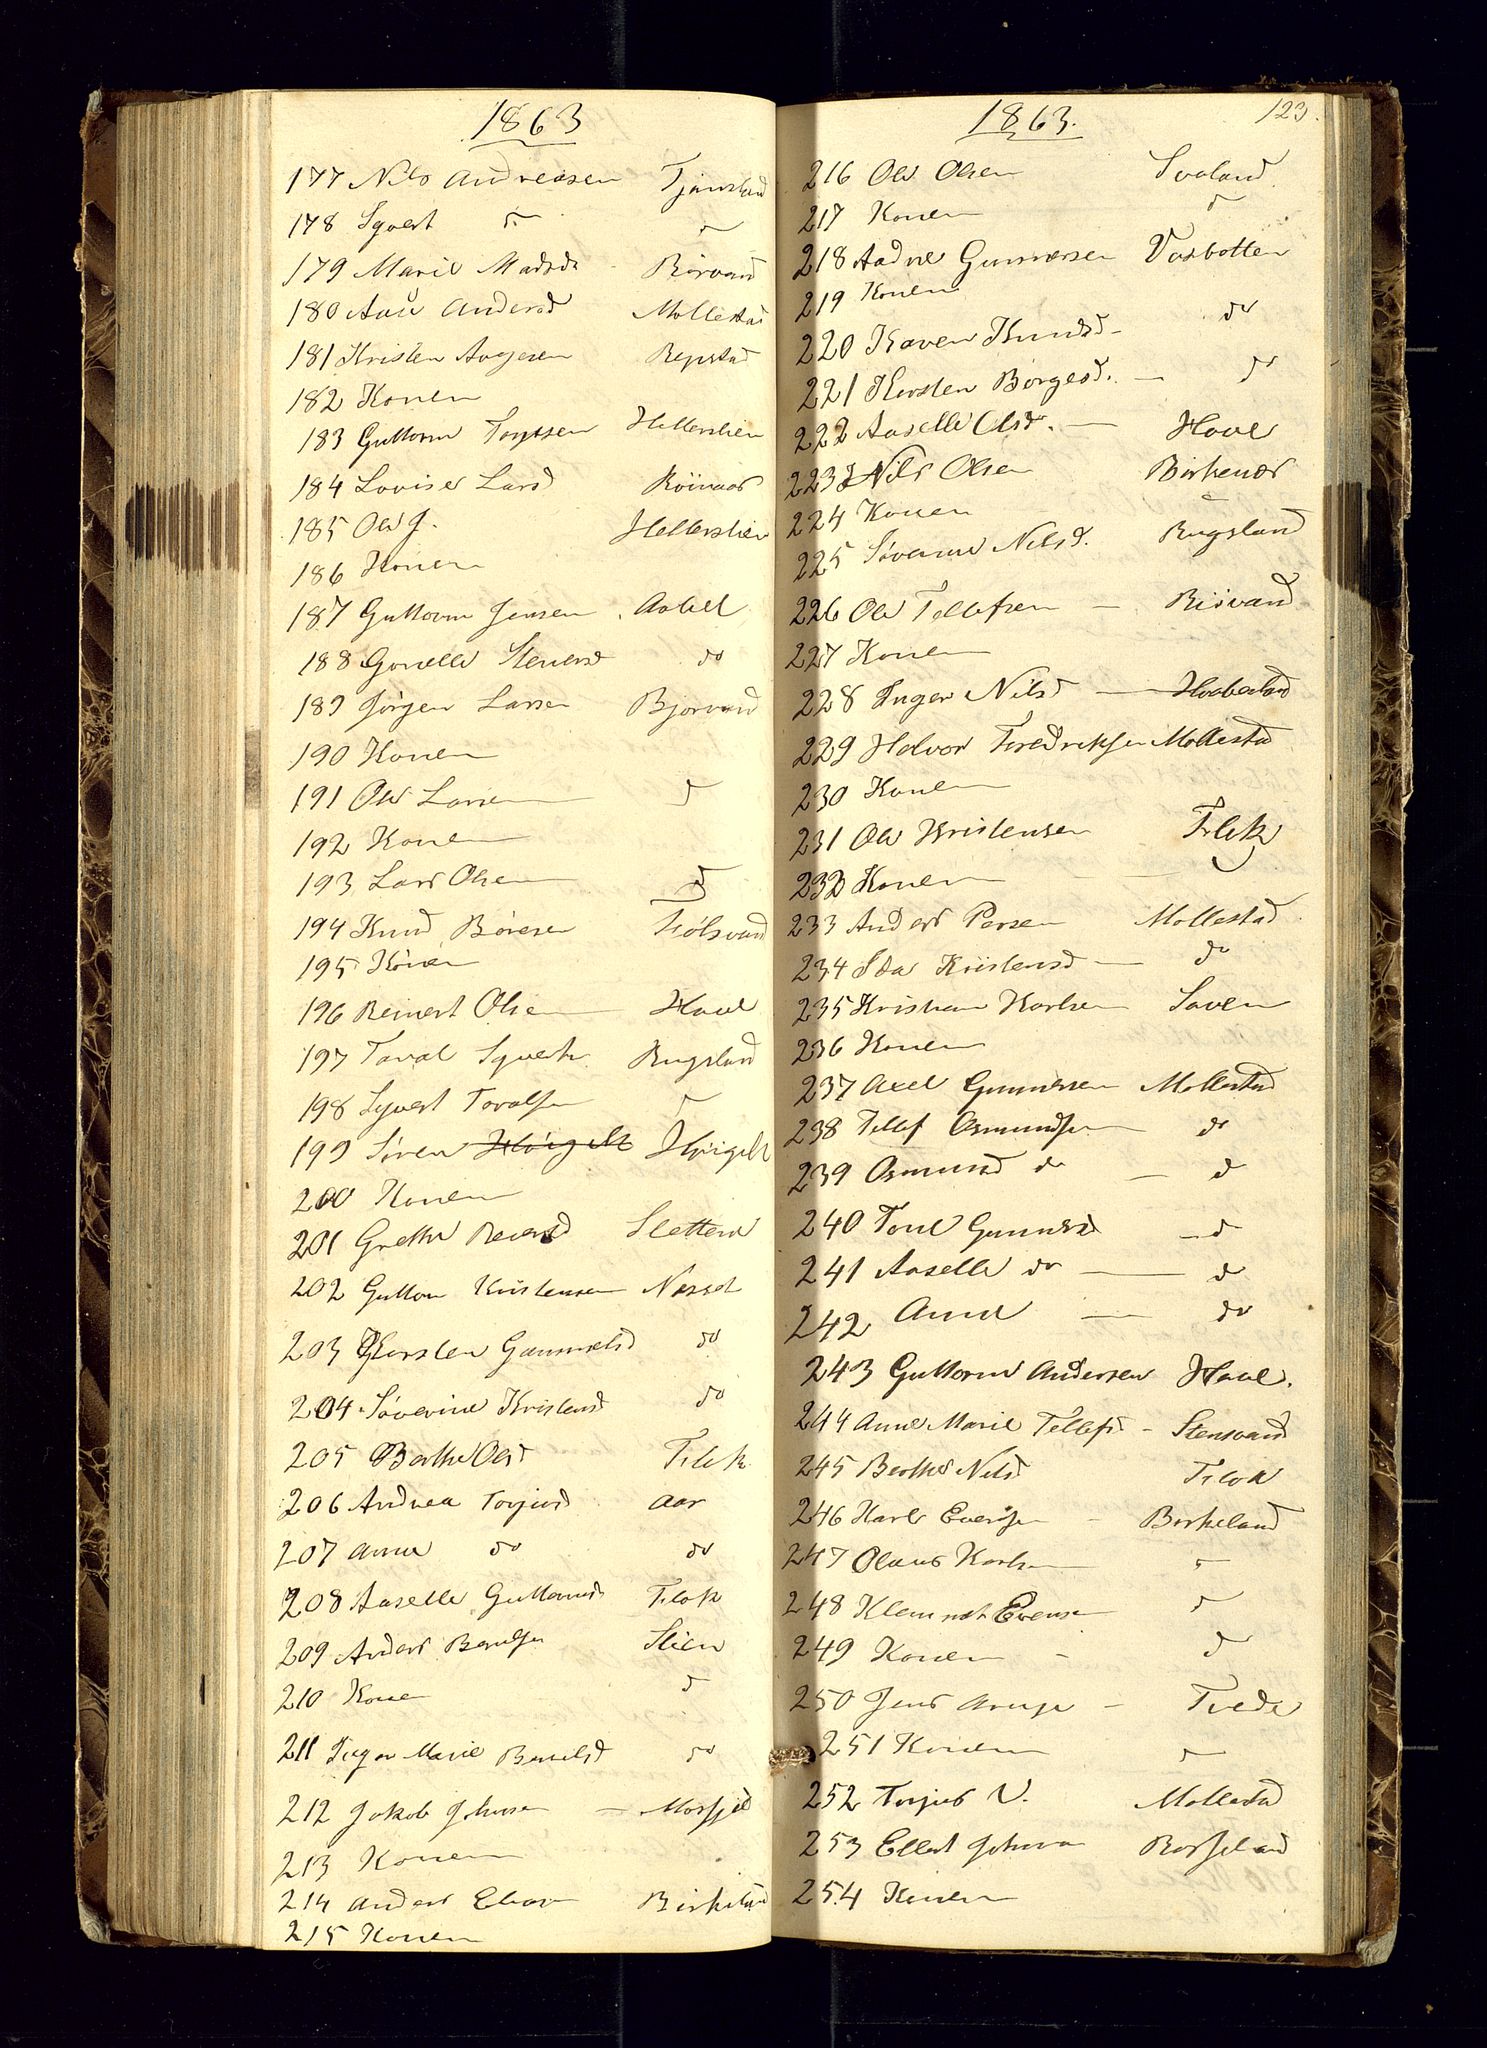 1863
177 Nils Andreasen Tjønsland
178 Sywert do do
179 Marie Madsd Birvand
180 Aase Andersd Mollestad
181 Kristen Aagesen Repstad
182 Konen
183 Guttorm Torjusen Hellerslien
184 Lovise Larsd Röinaas
185 Ole J. Hellerslien
186 Konen
187 Guttorm Jensen Aabel
188 Gonelle Stenersd do
189 Jörgen Larsen Bjorvand
190 Konen
191 Ole Larsen do
192 Konen
193 Lars Olsen do
194 Knud Böresen Fiölsvand
195 Konen
196 Reinert Olsen Haave
197 Taral Sywerts Rugsland
198 Sywert Taralsen do
199 Sören Högelt
200 Konen
201 Grethe Reiersd Slettene
202 Guttorm Kristensen Nesset
203 Kersten Gammelsd do
204 Söverine Kristensd do
205 Berthe Olsd Flak
206 Andrea Torjusd Aas
207 Anne do do
208 Aaselle Guttormsd Flak
209 Anders Berulfsen Stien
210 Konen do
211 Inger Marie Berulsd do
212 Jakob Johnsen Mosfjel
213 Konen
214 Anders Eliasen Birkeland
215 Konen
1863. 123.
216 Ole Olsen Svaland
217 Konen do
218 Aadne Gunnersen Vasbotten
219 Konen
220 Karen Knudsd do
221 Kersten Börgesd. do
222 Aaselle Olsdr. Haave
223 Nils Olsen Birkenes
224 Konen
225 Söverine Nilsd. Rugsland
226 Ole Tellefsen Risvand
227 Konen
228 Inger Nilsd Haabesland
229 Halvor Fredriksen Mollestad
230 Konen
231 Ole Kristensen Flak
232 Konen
233 Anders Persen Mollestad
234 Ida Kristensd do
235 Kristian Karlsen Saven
236 Konen
237 Axel Gunnersen Mollestad
238 Tellef Osmundsen do
239 Osmund do do
240 Tone Gunnersd do
241 Aaselle do do
242 Anne do
243 Guttorm Andersen Haave.
244 Anne Marie Tellefsd Stensvand
245 Berthe Nilsd Flak
246 Karl Evensen Birkeland
247 Olaus Karlsen do
248 Klemmet Evensen do
249 Konen do
250 Jens Tvede
251 Konen do
252 Torjus N. Mollestad
253 Ellert Johnsen Rosseland
254 Konen